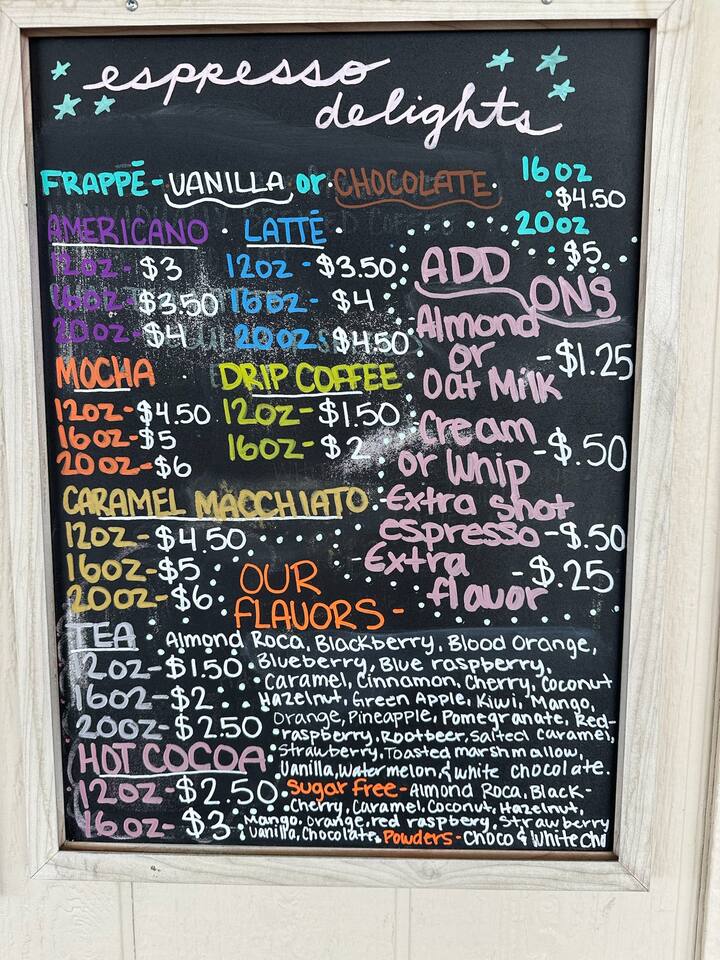 espresso
delights
FRAPPĒ - VANILLA or CHOCOLATE.
16oz
$4.50
20oz
$5
AMERICANO
12oz - $3
16oz - $3.50
20oz - $4
LATTĒ
12oz - $3.50
16oz - $4
20oz $4.50
ADD
ONS
Almond
or
Oat Milk
- $1.25
Cream
or Whip
- $.50
Extra shot
espresso - $.50
Extra
flavor
- $.25
MOCHA
12oz - $4.50
16oz - $5
20oz - $6
DRIP COFFEE
12oz - $1.50
16oz - $2
CARAMEL MACCHIATO
12oz - $4.50
16oz - $5
20oz - $6
TEA
12oz - $1.50
16oz - $2
20oz - $2.50
HOT COCOA
12oz - $2.50
16oz - $3
OUR
FLAVORS -
Almond Roca, Blackberry, Blood Orange,
Blueberry, Blue raspberry,
Caramel, Cinnamon, Cherry, Coconut
Hazelnut, Green Apple, Kiwi, Mango,
Orange, Pineapple, Pomegranate, Red-
raspberry, Rootbeer, Salted Caramel,
Strawberry, Toasted marshmallow,
Vanilla, Watermelon, & white chocolate.
Sugar Free - Almond Roca, Black-
Cherry, Caramel, Coconut, Hazelnut,
Mango, orange, red raspbery, Strawberry
Vanilla, Chocolate. Powders - Choco & White Cho